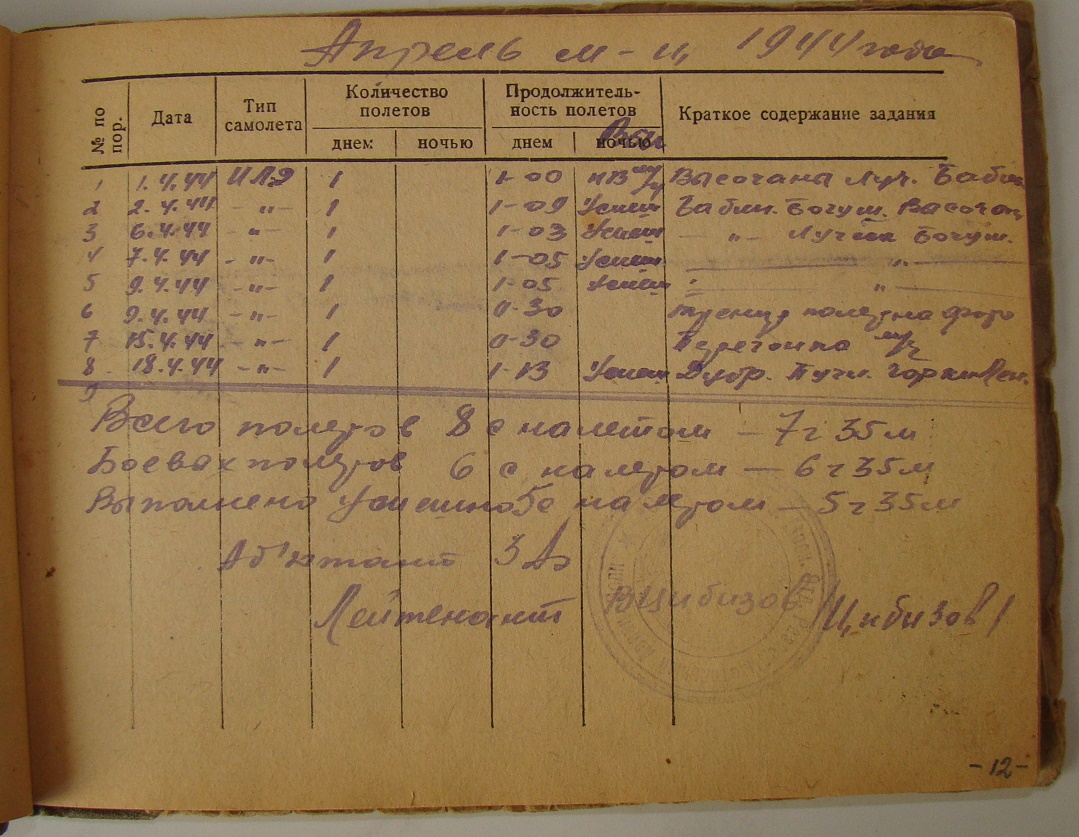 Апрель м-ц 1944 года
№ по пор. Дата Тип самолета Количество полетов Продолжительность полетов Краткое содержание задания
днем ночью днем ночью
1 1.4.44 ИЛ-2 1 1-00 Высочаны Луч. Бабин
2 2.4.44 -"- 1 1-09 Успеш Бабин. Богуш. Высочан
3 6.4.44 -"- 1 1-03 Успеш -"- Лучёса Богуш.
4 7.4.44 -"- 1 1-05 Успеш -"-
5 9.4.44 -"- 1 1-05 Успеш -"-
6 9.4.44 -"- 1 0-30 полет на фото
7 15.4.44 -"- 1 0-30 Перегонка
8 18.4.44 -"- 1 1-13 Успеш Дубр.
9
Всего полетов 8 с налетом - 7ч 35м
Боевых полетов 6 с налетом - 6ч 35м
Выполнено Успешно 5 с налетом - 5ч 35м
Ад'ютант 3 Аэ
Лейтенант ВЦибизов /Цибизов/
-12-